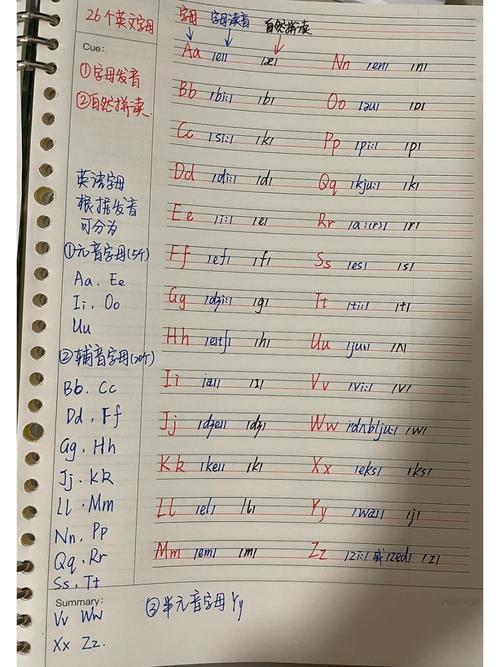 26个英文字母
Cue:
①字母发音
②自然拼读
英语字母
根据发音
可分为
①元音字母(5个)
Aa、Ee
Ii、Oo
Uu
②辅音字母(20个)
Bb、Cc
Dd、Ff
Gg、Hh
Jj、Kk
Ll、Mm
Nn、Pp
Qq、Rr
Ss、Tt
Summary:
Vv Ww
Xx Zz.
③半元音字母Yy
字母 字母读音 自然拼读
Aa /eɪ/ /æ/ Nn /en/ /n/
Bb /bi:/ /b/ Oo /əu/ /ɒ/
Cc /si:/ /k/ Pp /pi:/ /p/
Dd /di:/ /d/ Qq /kju:/ /k/
Ee /i:/ /e/ Rr /a:(r)/ /r/
Ff /ef/ /f/ Ss /es/ /s/
Gg /dʒi:/ /g/ Tt /ti:/ /t/
Hh /eɪtʃ/ /h/ Uu /ju:/ /ʌ/
Ii /aɪ/ /ɪ/ Vv /vi:/ /v/
Jj /dʒeɪ/ /dʒ/ Ww /dʌblju:/ /w/
Kk /keɪ/ /k/ Xx /eks/ /ks/
Ll /el/ /l/ Yy /waɪ/ /j/
Mm /em/ /m/ Zz /zi:/或/zed/ /z/